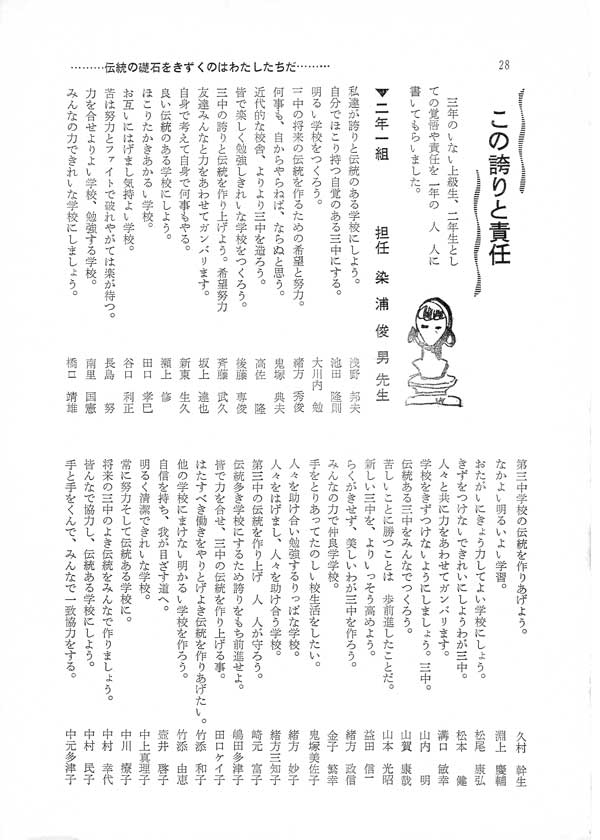 28
………伝統の礎石をきずくのはわたしたちだ………
この誇りと責任
三年のいない上級生、二年生とし
ての覚悟や責任を一年の　人　人に
書いてもらいました。
▼二年一組　　担任　染浦俊男先生
私達が誇りと伝統のある学校にしよう。　浅野　邦夫
自分でほこり持つ自覚のある三中にする。　池田　隆則
明るい学校をつくろう。　大川内　勉
三中の将来の伝統を作るための希望と努力。　緒方　秀俊
何事も、自からやらねば、ならぬと思う。　鬼塚　典夫
近代的な校舎、よりより三中を造ろう。　高佐　隆
皆で楽しく勉強しきれいな学校をつくろう。　後藤　専俊
三中の誇りと伝統を作り上げよう。希望努力　斉藤　武久
友達みんなと力をあわせてガンバります。　坂上　達也
自身で考えて自身で何事もやる。　新東　生久
良い伝統のある学校にしよう。　瀬上　修
ほこりたかきあかるい学校。　田口　孝巳
お互いにはげまし気持よい学校。　谷口　利正
苦は努力とファイトで破れやがては楽が待つ。　長島　努
力を合せよりよい学校、勉強する学校。　南里　国憲
みんなの力できれいな学校にしましょう。　橋口　靖雄
第三中学校の伝統を作りあげよう。　久村　幹生
なかよい明るいよい学習。　淵上　慶輔
おたがいにきょう力してよい学校にしょう。　松尾　康弘
きずをつけないできれいにしようわが三中。　松本　健
人々と共に力をあわせてガンバります。　溝口　敏幸
学校をきずつけないようにしましょう。三中。　山内　明
伝統ある三中をみんなでつくろう。　山賀　康哉
苦しいことに勝つことは　歩前進したことだ。　山本　光昭
新しい三中を、よりいっそう高めよう。　益田　信一
らくがきせず、美しいわが三中を作ろう。　緒方　政信
みんなの力で仲良学学校。　金子　繁幸
手をとりあってたのしい校生活をしたい。　鬼塚美佐子
人々を助け合い勉強するりっぱな学校。　緒方　妙子
人々をはげまし、人々を助け合う学校。　緒方三知子
第三中の伝統を作り上げ　人　人が守ろう。　崎元　富子
伝統多き学校にするため誇りをもち前進せよ。　嶋田多津子
皆で力を合せ、三中の伝統を作り上げる事。　田口ケイ子
はたすべき働きをやりとげよき伝統を作りあげたい。　竹添　和子
他の学校にまけない明かるい学校を作ろう。　竹添　由恵
自信を持ち、我が目ざす道へ。　壺井　啓子
明るく清潔できれいな学校。　中上真理子
常に努力そして伝統ある学校に。　中川　療子
将来の三中のよき伝統をみんなで作りましょう。　中村　幸代
皆んなで協力し、伝統ある学校にしよう。　中村　民子
手と手をくんで、みんなで一致協力をする。　中元多津子